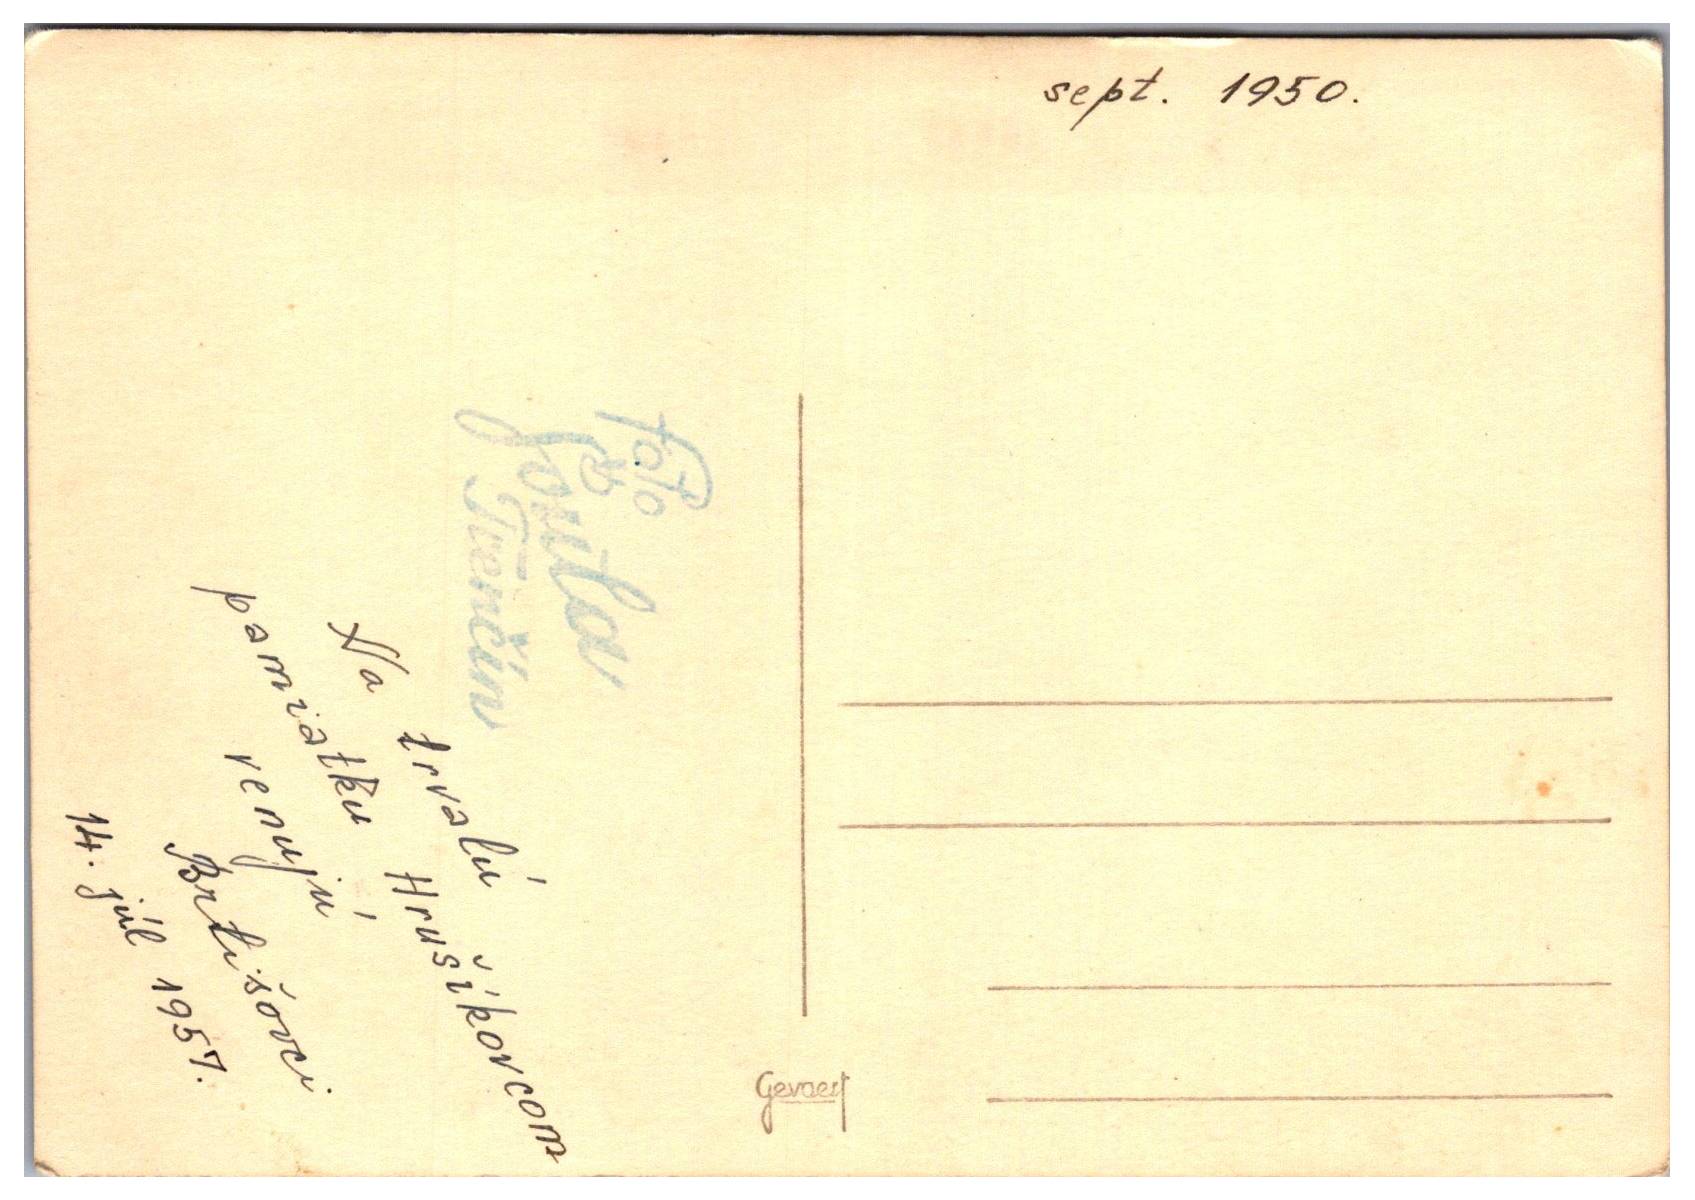 sept. 1950.
Foto
Trenčín
Na trvalú
pamiatku Hrušíkovcom
venujú
Brtišovci
14. júl 1957.
Gevaert